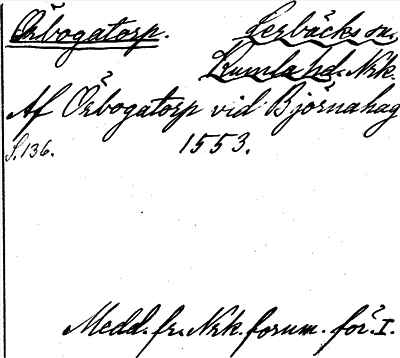 Örbogatorp. Lerbäcks sn,
Kumla hd. Nrk.
Af Örbogatorp vid Björnahag
S. 136. 1553.
Medd. fr. Nrk. fornm. för. I.